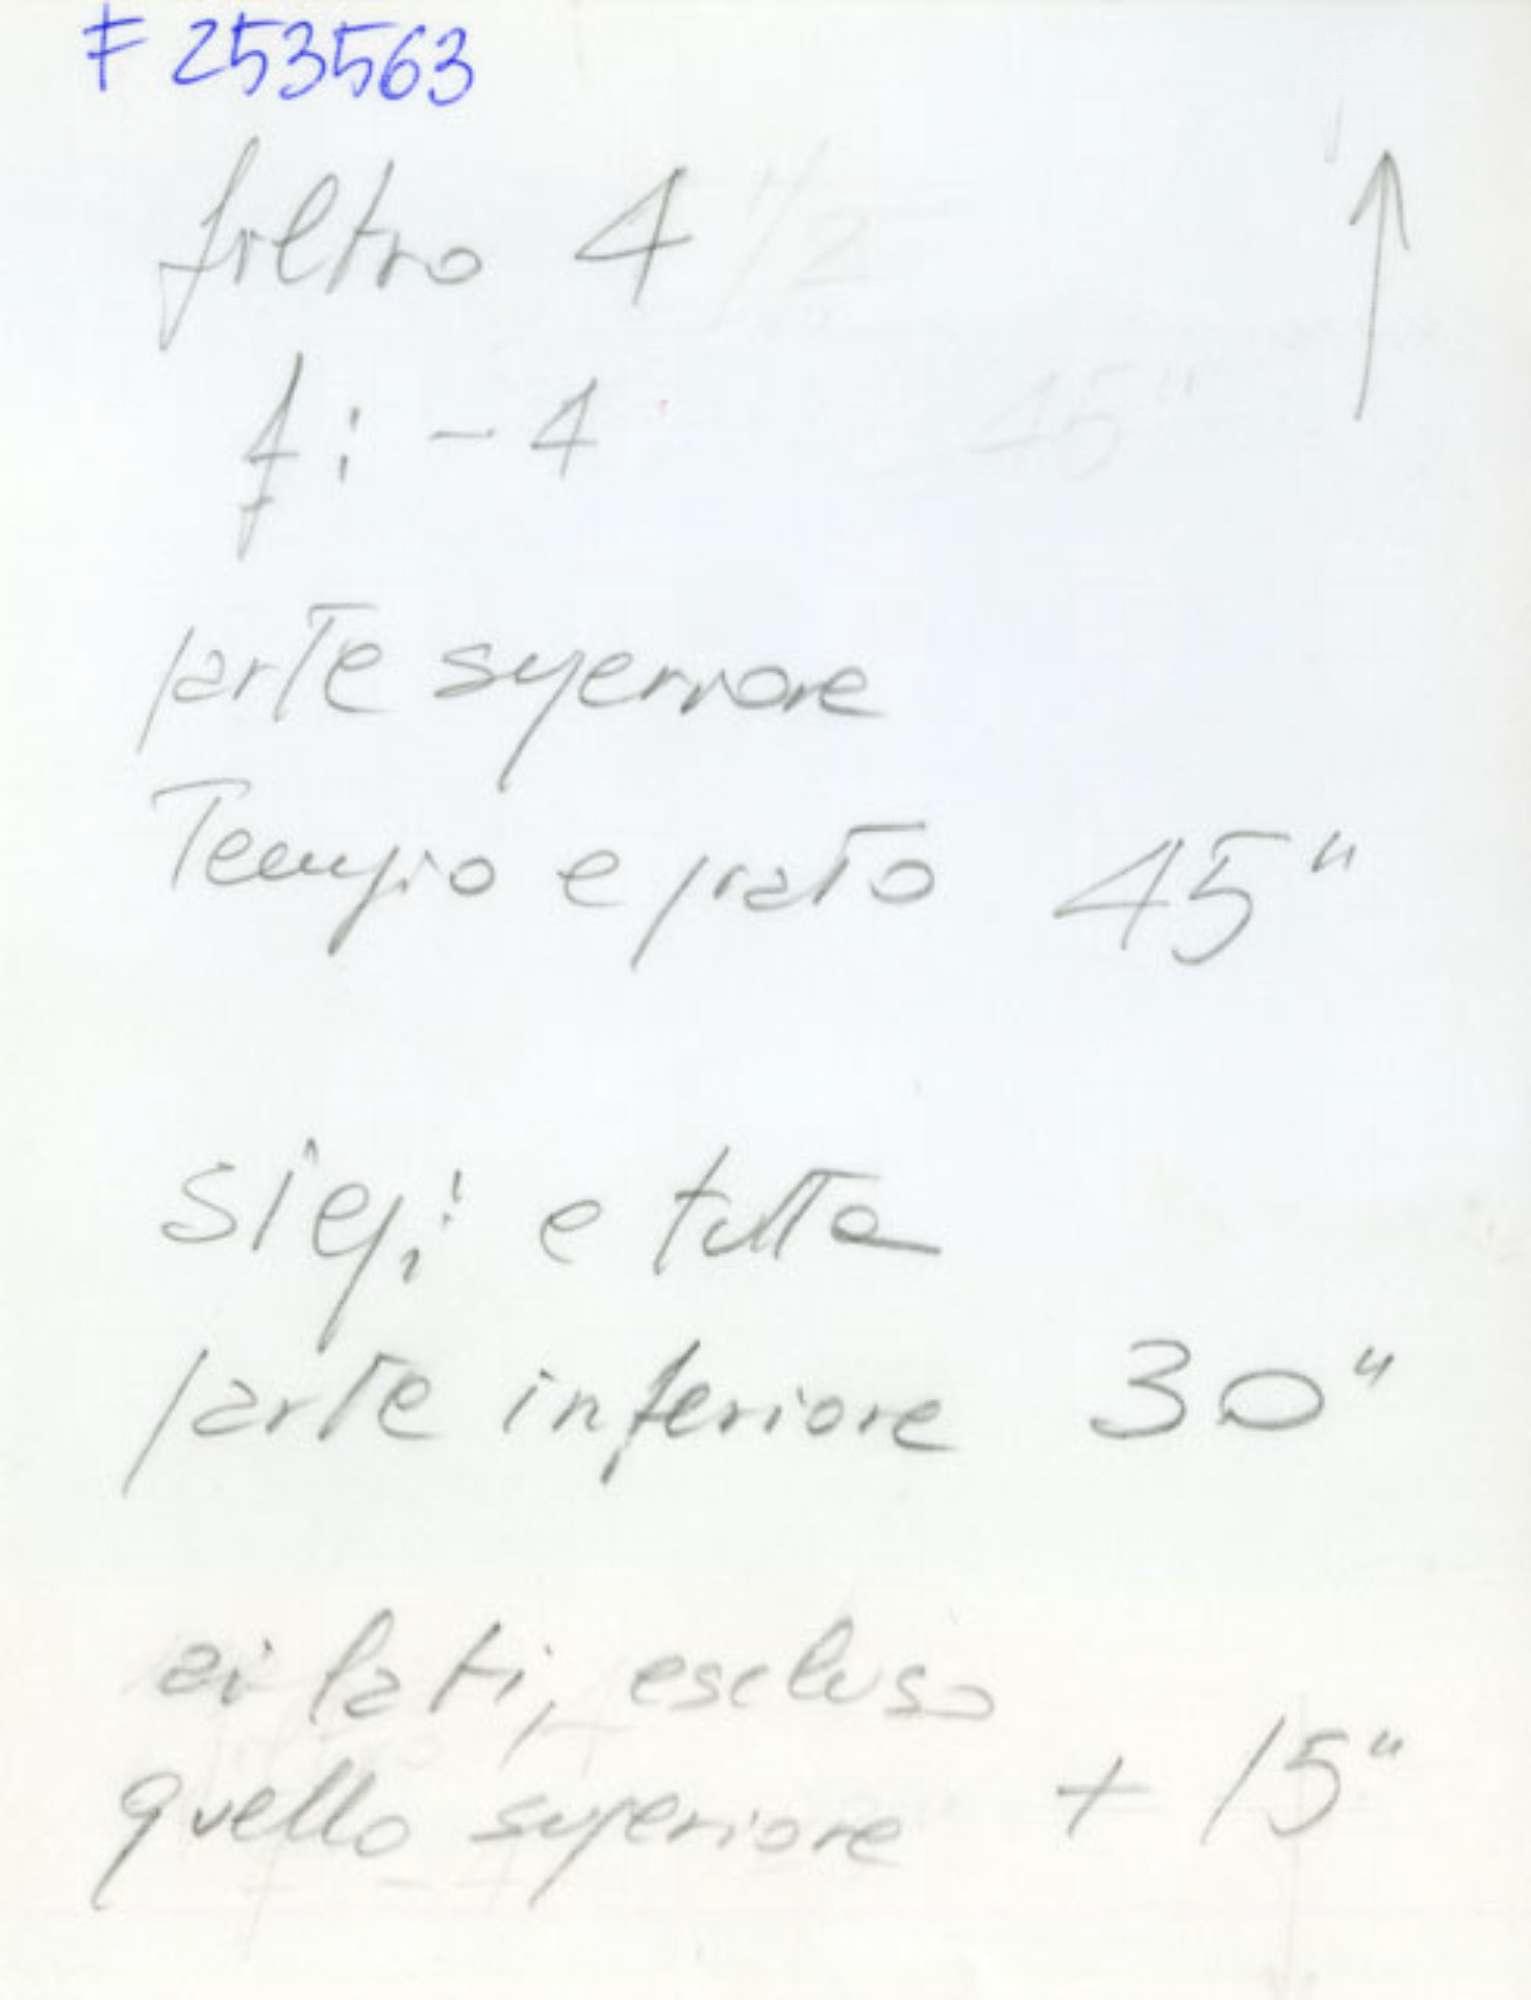 F 253563
filtro 4 1/2
f: - 4
45"
parte superiore
Tempio e prato 45"
siepi e tutta
parte inferiore 30"
ai lati, escluso
quello superiore + 15"